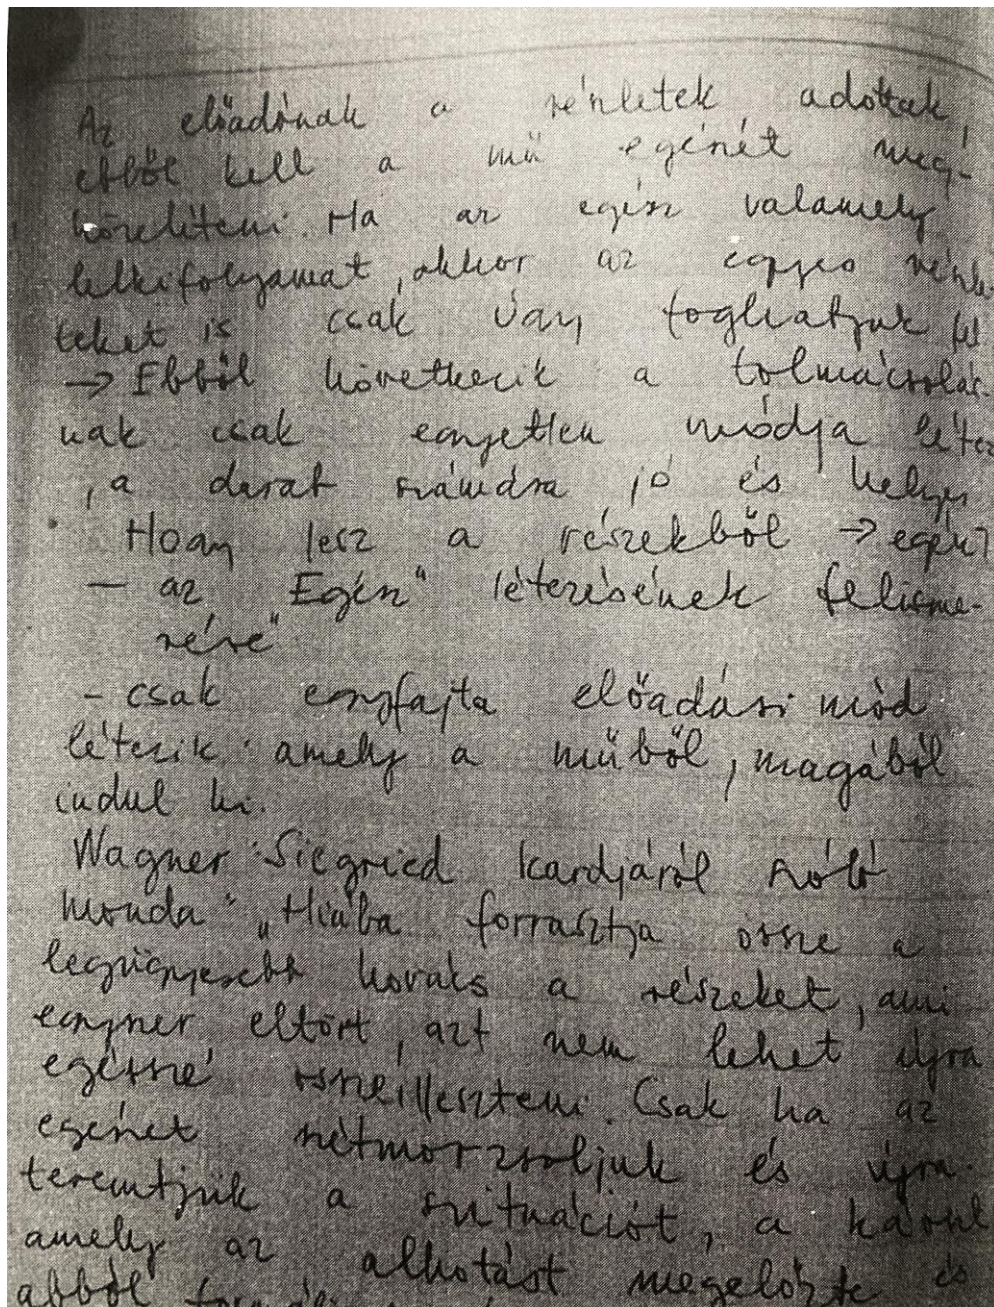 Az előadónak a részletek adottak,
ebből kell a mű egészét meg-
közelíteni. Ha az egész valamely
lelkifolyamat, akkor az egyes részle-
teket is csak úgy foghatjuk fel
→ Ebből következik a tolmácsolás-
nak csak egyetlen módja létez
, a darab számára jó és helyes
Hogy lesz a részekből → egész?
– az Egész" létezésének felisme-
rése"
- csak egyfajta előadási mód
létezik amely a műből, magából
indul ki.
Wagner Siegried kardjáról szóló
monda „Hiába forrasztja össze a
legügyesebb kovács a részeket, ami
egyszer eltört, azt nem lehet újra
egésszé összeilleszteni. Csak ha az
egészet szétmorzsoljuk és újra-
teremtjük a szituációt, a káoszt
amely az alkotást megelőzte és
abból